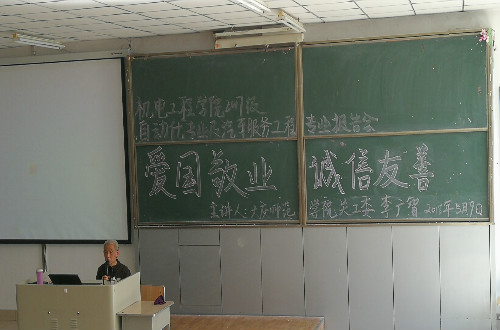 机电工程学院2017级
自动化专业及汽车服务工程专业报告会
爱国敬业 诚信友善
主讲人: 学院关工委 李广贺 2018年5月9日